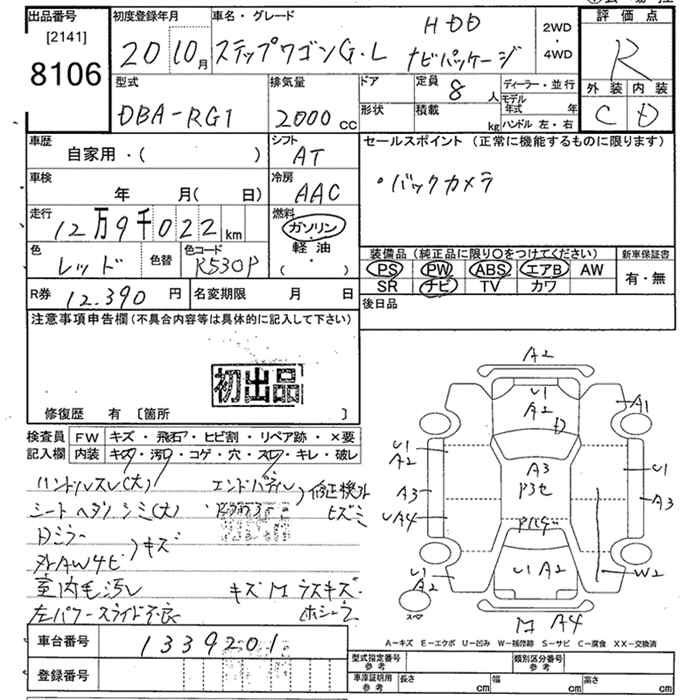 出品番号 初度登録年月 車名・グレード 評価点
[2141]
8106
20 10月 ステップワゴンG・L HDD ナビパッケージ 2WD・4WD R
型式 排気量 ドア 定員 8人 ディーラー・並行 外装 内装
DBA-RG1 2000cc 形状 積載 kg モデル年式 年 ハンドル 左・右 C D
車歴 自家用・( ) シフト AT セールスポイント (正常に機能するものに限ります)
車検 年 月( 日) 冷房 AAC ・バックカメラ
走行 12万9千022km 燃料 ガソリン・軽油 ( ・ )
色 レッド 色替 色コード R530P 装備品 (純正品に限り○をつけてください) 新車保証書
PS PW ABS エアB AW 有・無
SR ナビ TV カワ
R券 12,390円 名変期限 月 日 後日品
注意事項申告欄 (不具合内容等は具体的に記入して下さい)
初出品
修復歴 有 [箇所 ]
検査員記入欄 FW キズ・飛石・ヒビ割・リペア跡・×要
内装 キズ・汚レ・コゲ・穴・スレ・キレ・破レ
ハンドルスレ(大) エンドパネル 修正機外
シートヘタリ シミ(大) ヒズミ
Dミラー
外AW4ヒ キズ
室内毛汚レ キズM ラスキズ
左パワースライド不良
A2
U1
A2
D
A1
U1
A2
A3
P3セ
U1
A3
A3
UA4
U1
A2
U1 A2
W2
スペ
M A4
A-キズ E-エクボ U-凹み W-補修跡 S-サビ C-腐食 XX-交換済
車台番号 1339201
登録番号
型式指定番号 参考 類別区分番号 参考
車庫証明用 参考 長さ cm 幅 cm 高さ cm